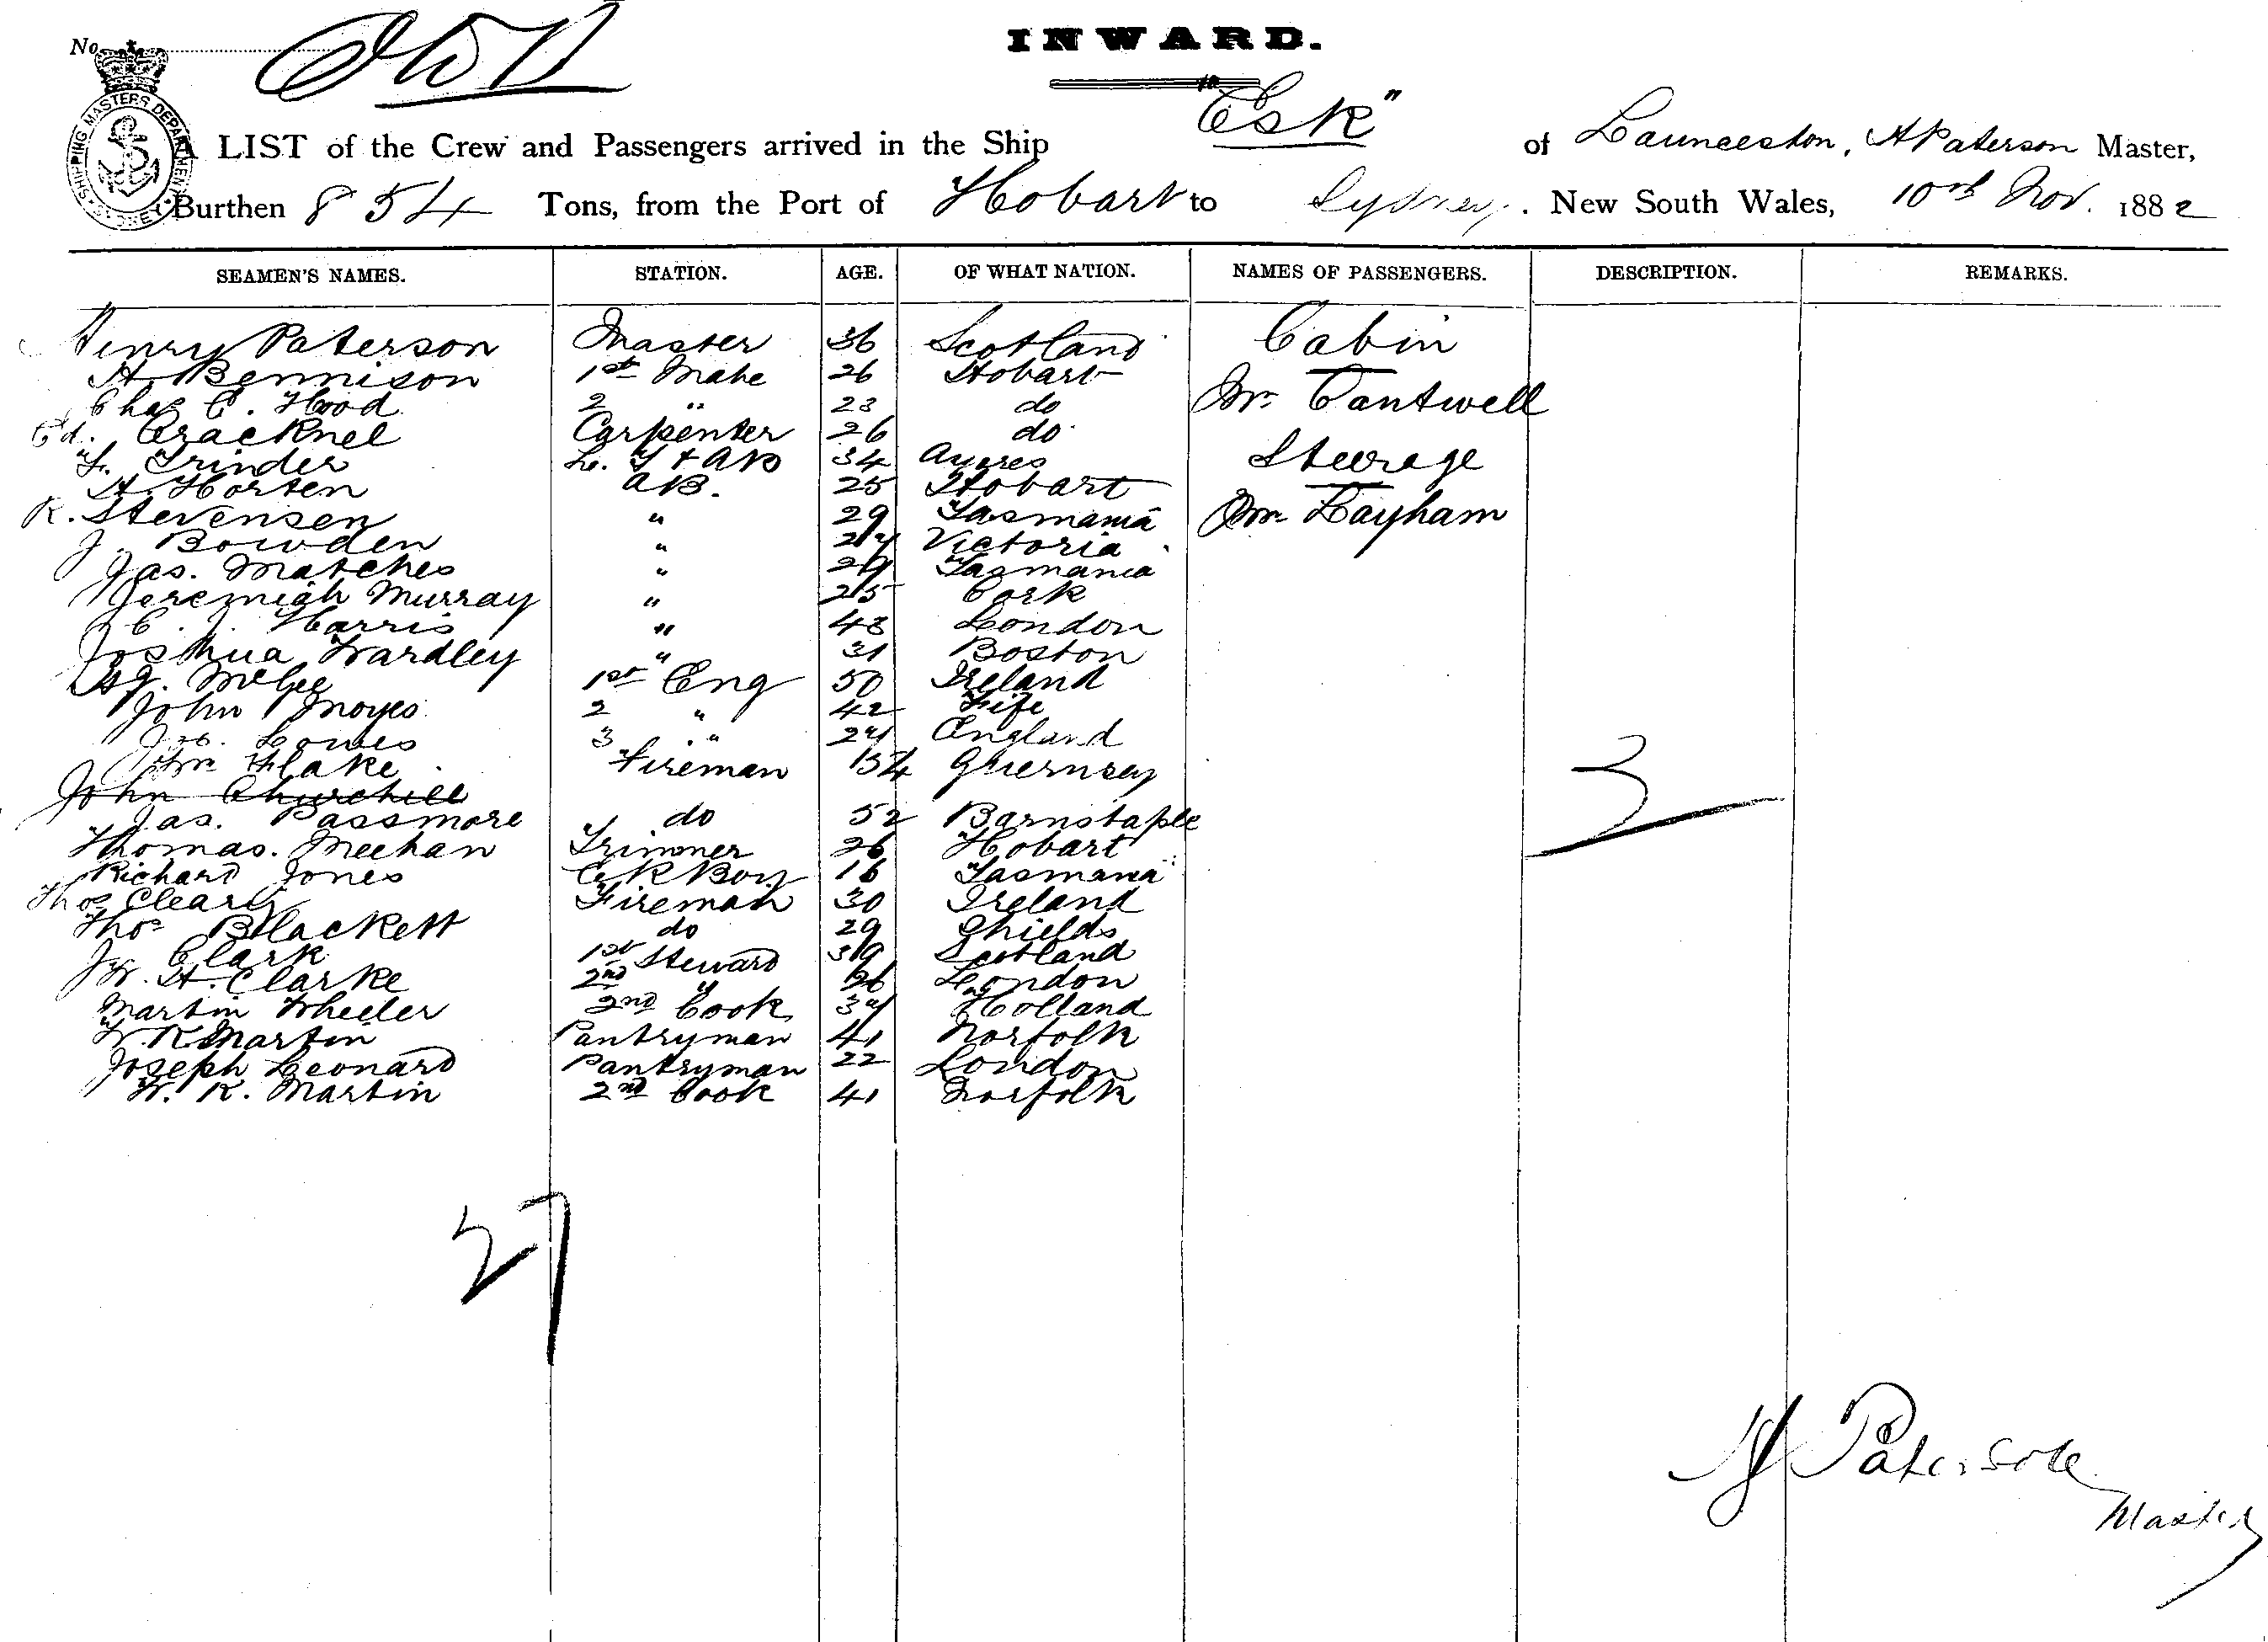 No
INWARD.
SHIPPING MASTERS DEPARTMENT SYDNEY
A LIST of the Crew and Passengers arrived in the Ship "Esk" of Launceston, H Paterson Master,
Burthen 854 Tons, from the Port of Hobart to Sydney. New South Wales, 10th Nov. 1882
SEAMEN'S NAMES. STATION. AGE. OF WHAT NATION. NAMES OF PASSENGERS. DESCRIPTION. REMARKS.
Henry Paterson Master 36 Scotland Cabin
H. Bennison 1st Mate 26 Hobart
Chas E. Hood 2 " 23 do Mr. Cantwell
Ed. Cracknel Carpenter 26 do
Trinder Lr. T & AB 34 Ayeres Steerage
H. Horten AB. 25 Hobart
R. Stevensen " 29 Tasmania Mr Layham
J. Bowden " Victoria
Jas. Matches " 29 Tasmania
Jeremiah Murray " 25 Cork
C. J. Harris " 43 London
Joshua Wardley " 31 Boston
McGee 1st Eng 50 Ireland
John Moyes 2 " 42 Fife
Lowes 3 " 24 England
Wm Flake Fireman 54 Guernsey
John Churchill
Jas. Passmore do 52 Barnstaple
3
Thomas. Meehan Trimmer 26 Hobart
Richard Jones E R Boy 16 Tasmania
Thos Cleary Fireman 30 Ireland
Thos Blackett do 29 Shields
J. Clark 1st Steward 39 Scotland
W. H. Clarke 2nd " 26 London
Martin Wheeler 2nd Cook 34 Holland
W. R. Martin Pantryman 41 Norfolk
Joseph Leonard Pantryman 22 London
W. R. Martin 2nd Cook 41 Norfolk
27
H Paterson
Master